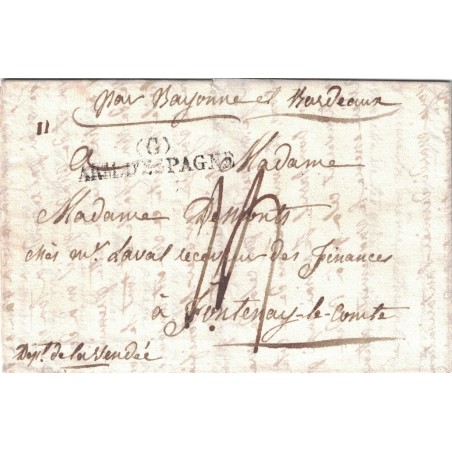 par Bayonne et Bordeaux
11
(G)
ARM. D'ESPAGNE
A Madame
Madame Demonts
chés mr. Laval receveur des finances
à Fontenay-le-Comte
Dept. de la Vendée